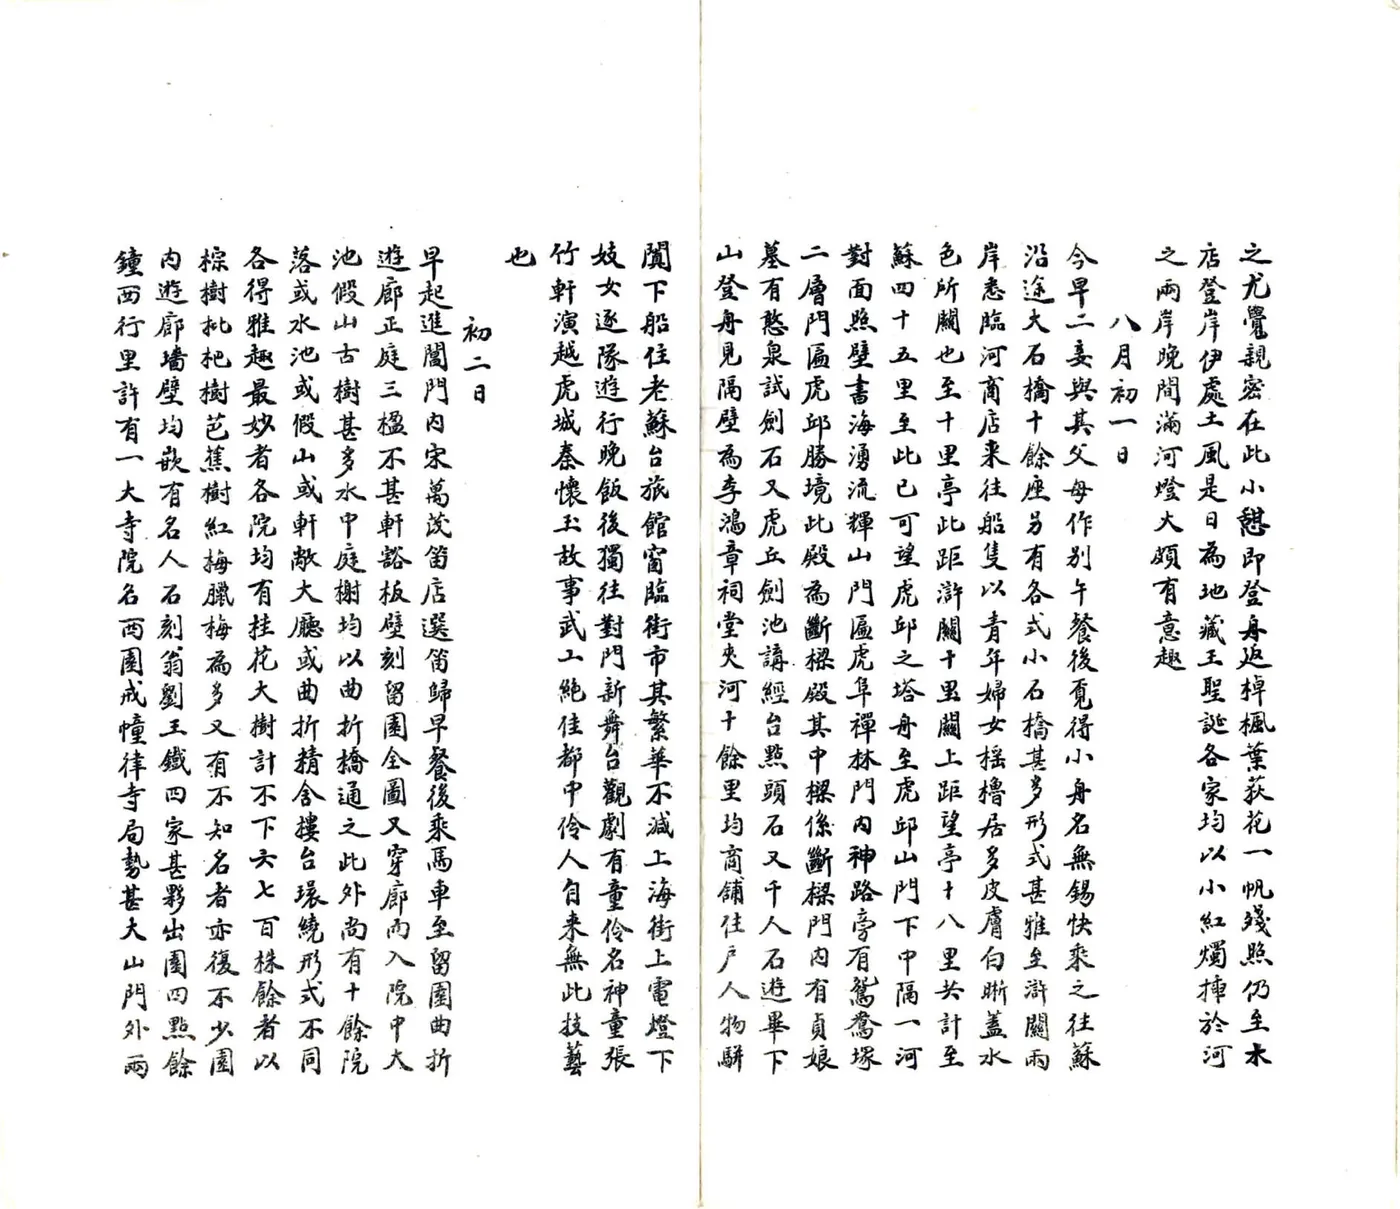 之尤覺親密在此小憩即登舟返棹楓葉荻花一帆殘照仍至木
店登岸伊處土風是日為地藏王聖誕各家均以小紅燭揷於河
之兩岸晚間滿河燈火頗有意趣
八月初一日
今早二妾與其父母作別午餐後覓得小舟名無錫快乘之往蘇
沿途大石橋十餘座另有各式小石橋甚多形式甚雅至滸關兩
岸悉臨河商店来往船隻以青年婦女搖櫓居多皮膚白晰蓋水
色所關也至十里亭此距滸關十里關上距望亭十八里共計至
蘇四十五里至此已可望虎邱之塔舟至虎邱山門下中隔一河
對面照壁書海湧流輝山門匾虎阜禪林門内神路旁有鴛鴦塚
二層門匾虎邱勝境此殿為斷樑殿其中樑係斷樑門内有貞娘
墓有憨泉試劍石又虎丘劍池講經台點頭石又千人石遊畢下
山登舟見隔壁為李鴻章祠堂夾河十餘里均商舖住戶人物駢
闐下船住老蘇台旅館窗臨街市其繁華不減上海街上電燈下
妓女逐隊遊行晚飯後獨往對門新舞台觀劇有童伶名神童張
竹軒演越虎城秦懷玉故事武工絶佳都中伶人自来無此技藝
也
初二日
早起進閶門内宋萬茂笛店選笛歸早餐後乘馬車至留園曲折
遊廊正庭三楹不甚軒豁板壁刻留園全圖又穿廊而入院中大
池假山古樹甚多水中庭榭均以曲折橋通之此外尚有十餘院
落或水池或假山或軒敞大廳或曲折精舍摟台環繞形式不同
各得雅趣最妙者各院均有桂花大樹計不下六七百株餘者以
棕樹枇杷樹芭蕉樹紅梅臘梅為多又有不知名者亦復不少園
内遊廊墻壁均嵌有名人石刻翁劉王鐵四家甚夥出園四點餘
鐘西行里許有一大寺院名西園戒幢律寺局勢甚大山門外兩